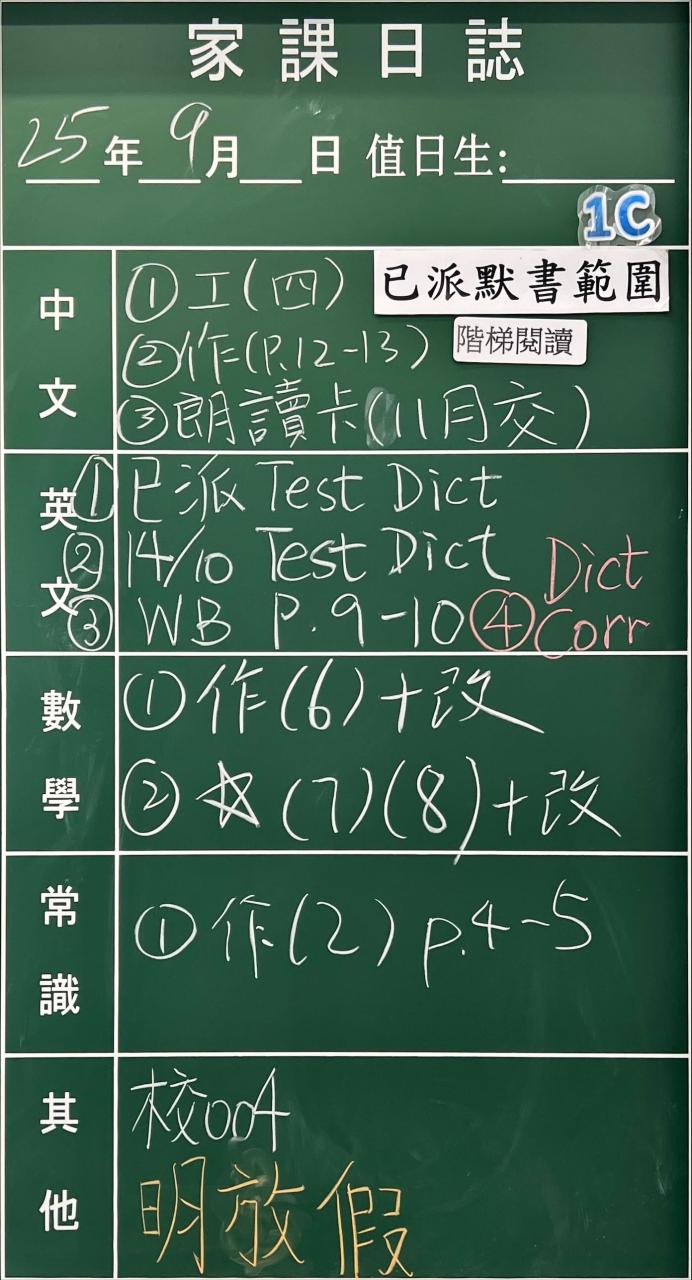 家課日誌
25年9月 日 值日生:
1C
中文
①工(四)
已派默書範圍
②作(P.12-13)
階梯閱讀
③朗讀卡(11月交)
英文
①已派 Test Dict
②14/10 Test Dict
③WB P.9-10 ④Dict Corr
數學
①作(6)+改
②☆(7)(8)+改
常識
①作(2) p.4-5
其他
校004
明放假